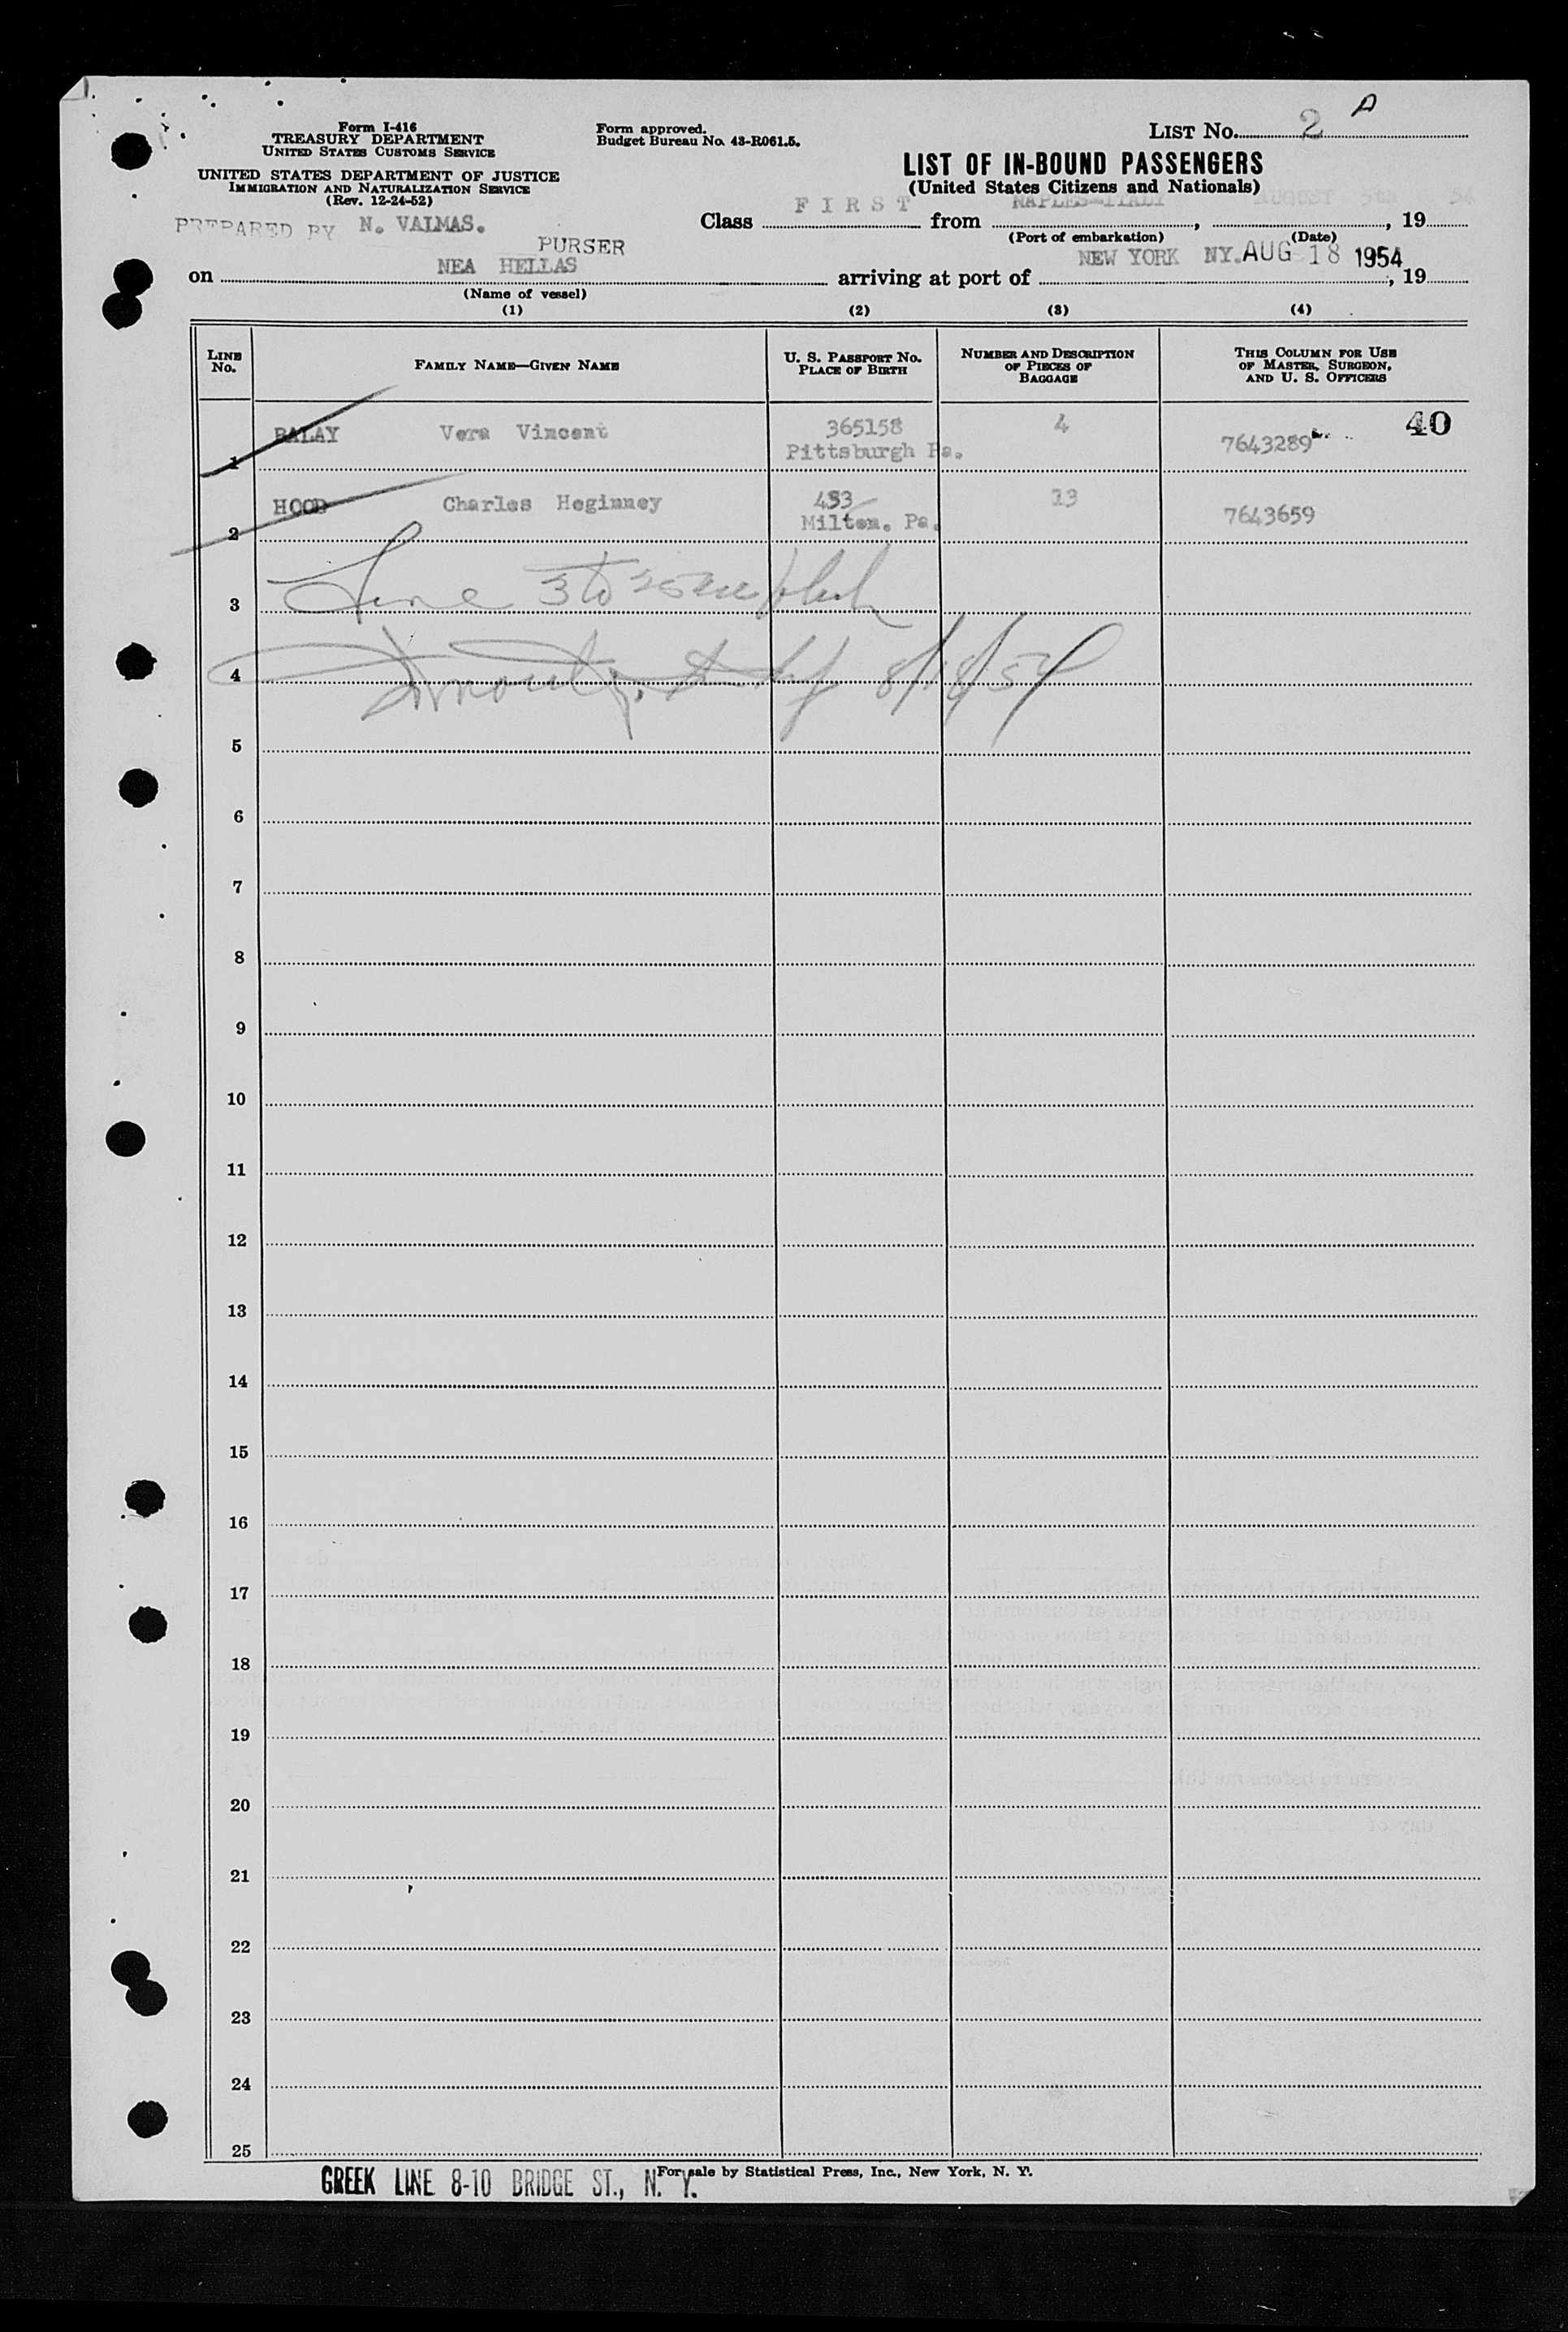 Form I-416
TREASURY DEPARTMENT
UNITED STATES CUSTOMS SERVICE
UNITED STATES DEPARTMENT OF JUSTICE
IMMIGRATION AND NATURALIZATION SERVICE
(Rev. 12-24-52)
Form approved.
Budget Bureau No. 43-R061.5.
LIST No. 2 A
LIST OF IN-BOUND PASSENGERS
(United States Citizens and Nationals)
PREPARED BY N. VALMAS.
PURSER
Class FIRST from NAPLES-ITALY, AUGUST 5th, 19 54
(Port of embarkation) (Date)
on NEA HELLAS arriving at port of NEW YORK NY. AUG 18 1954, 19
(Name of vessel)
(1) (2) (3) (4)
LINE No. FAMILY NAME—GIVEN NAME U. S. PASSPORT No. PLACE OF BIRTH NUMBER AND DESCRIPTION OF PIECES OF BAGGAGE THIS COLUMN FOR USE OF MASTER, SURGEON, AND U. S. OFFICERS
40
1 BALAY Vera Vincent 365158 4 7643289
Pittsburgh Pa.
2 HOOD Charles Heginney 453 13 7643659
Milton. Pa.
3 Line 3 to 25
4 8/18/54
5
6
7
8
9
10
11
12
13
14
15
16
17
18
19
20
21
22
23
24
25
For sale by Statistical Press, Inc., New York, N. Y.
GREEK LINE 8-10 BRIDGE ST., N. Y.